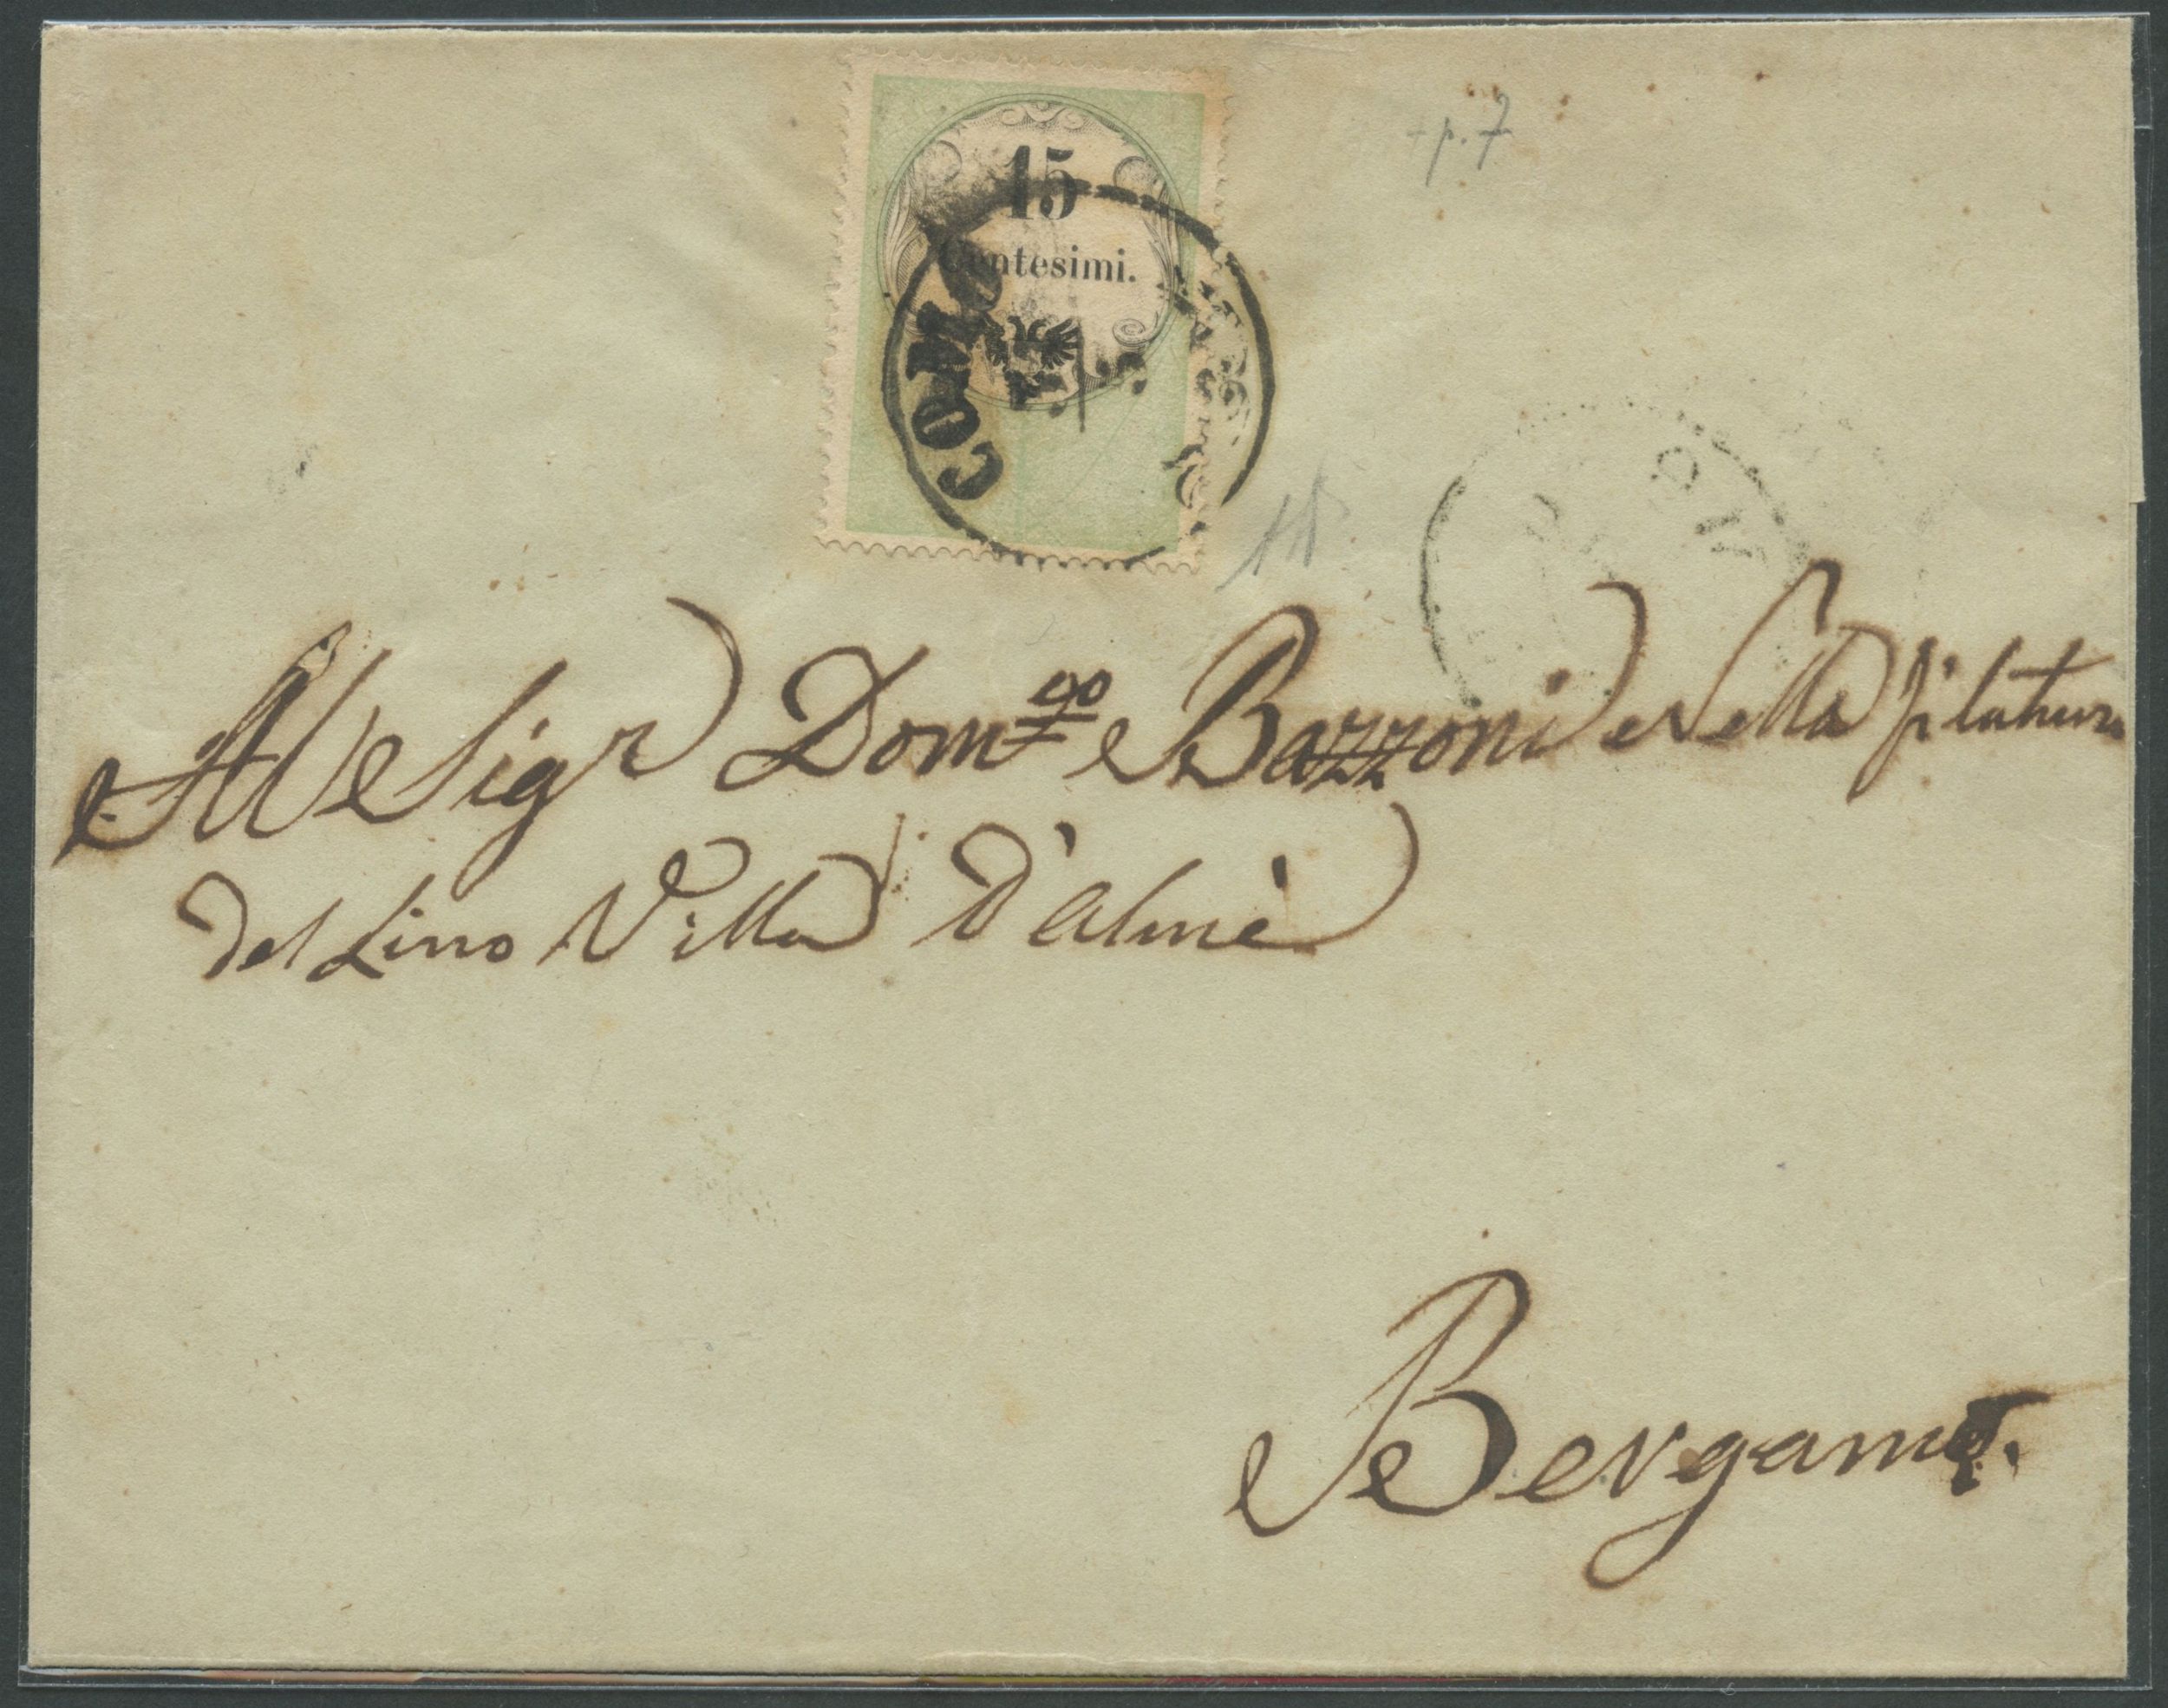 + p. 7
15
Centesimi.
COMO
Al Sigr Dom.go Bazzoni Nella filatura
del Lino Villa D'Almè
Bergamo.